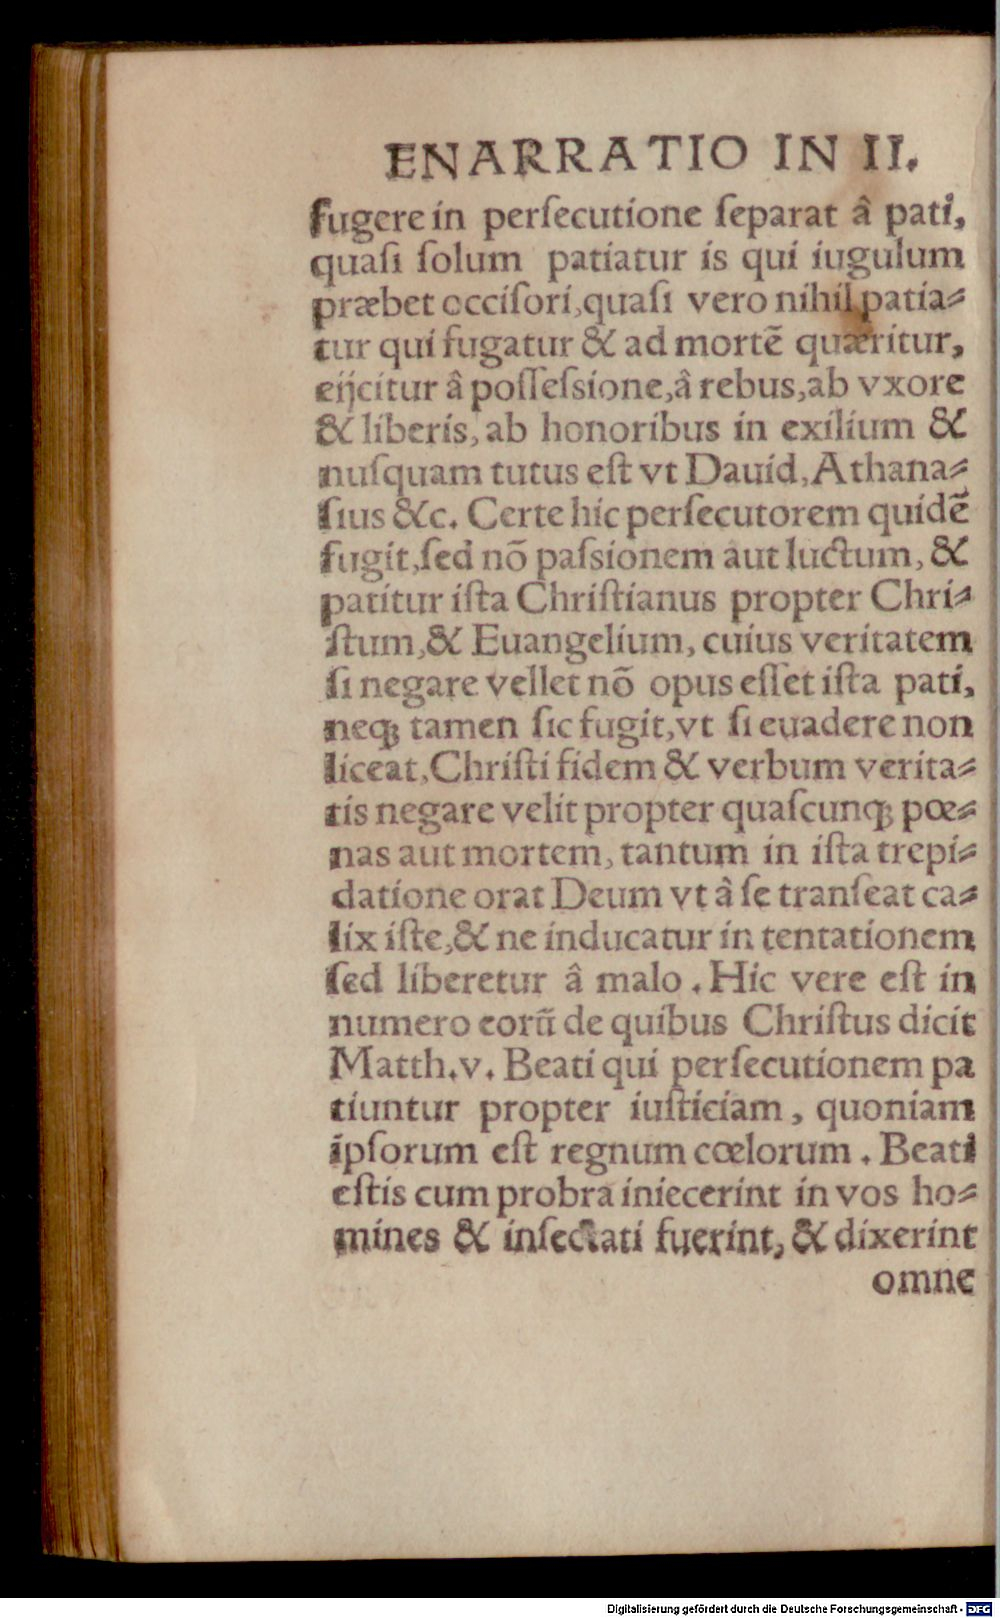 ENARRATIO IN II.
fugere in perſecutione ſeparat â pati,
quaſi ſolum patiatur is qui iugulum
præbet occiſori, quaſi vero nihil patia⸗
tur qui fugatur & ad mortē quæritur,
eijcitur â poſſeſsione, â rebus, ab vxore
& liberis, ab honoribus in exilium &
nuſquam tutus eſt vt Dauid, Athana⸗
ſius &c. Certe hic perſecutorem quidē
fugit, ſed nō paſsionem aut luctum, &
patitur iſta Chriſtianus propter Chri⸗
ſtum, & Euangelium, cuius veritatem
ſi negare vellet nō opus eſſet iſta pati,
neqꝫ tamen ſic fugit, vt ſi euadere non
liceat, Chriſti fidem & verbum verita⸗
tis negare velit propter quaſcunqꝫ pœ⸗
nas aut mortem, tantum in iſta trepi⸗
datione orat Deum vt â ſe tranſeat ca⸗
lix iſte, & ne inducatur in tentationem
ſed liberetur â malo. Hic vere eſt in
numero eorū de quibus Chriſtus dicit
Matth. v. Beati qui perſecutionem pa
tiuntur propter iuſticiam, quoniam
ipſorum eſt regnum cœlorum. Beati
eſtis cum probra iniecerint in vos ho⸗
mines & inſectati fuerint, & dixerint
omne
Digitalisierung gefördert durch die Deutsche Forschungsgemeinschaft - DFG